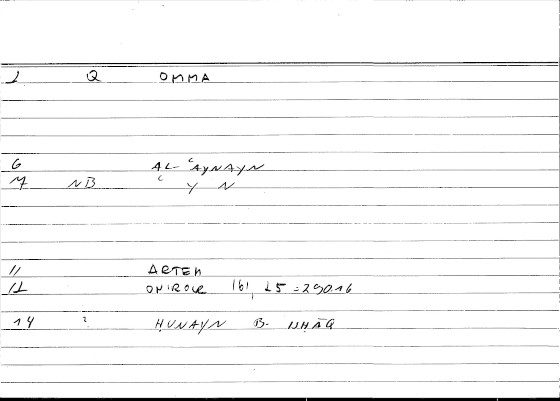 1 Q OMMA
6 AL- ʿAYNAYN
7 NB ʿ Y N
11 ARTEM
12 ONIROCR 161, 15 = 290.16
14 ? ḤUNAYN B. ISḤĀQ